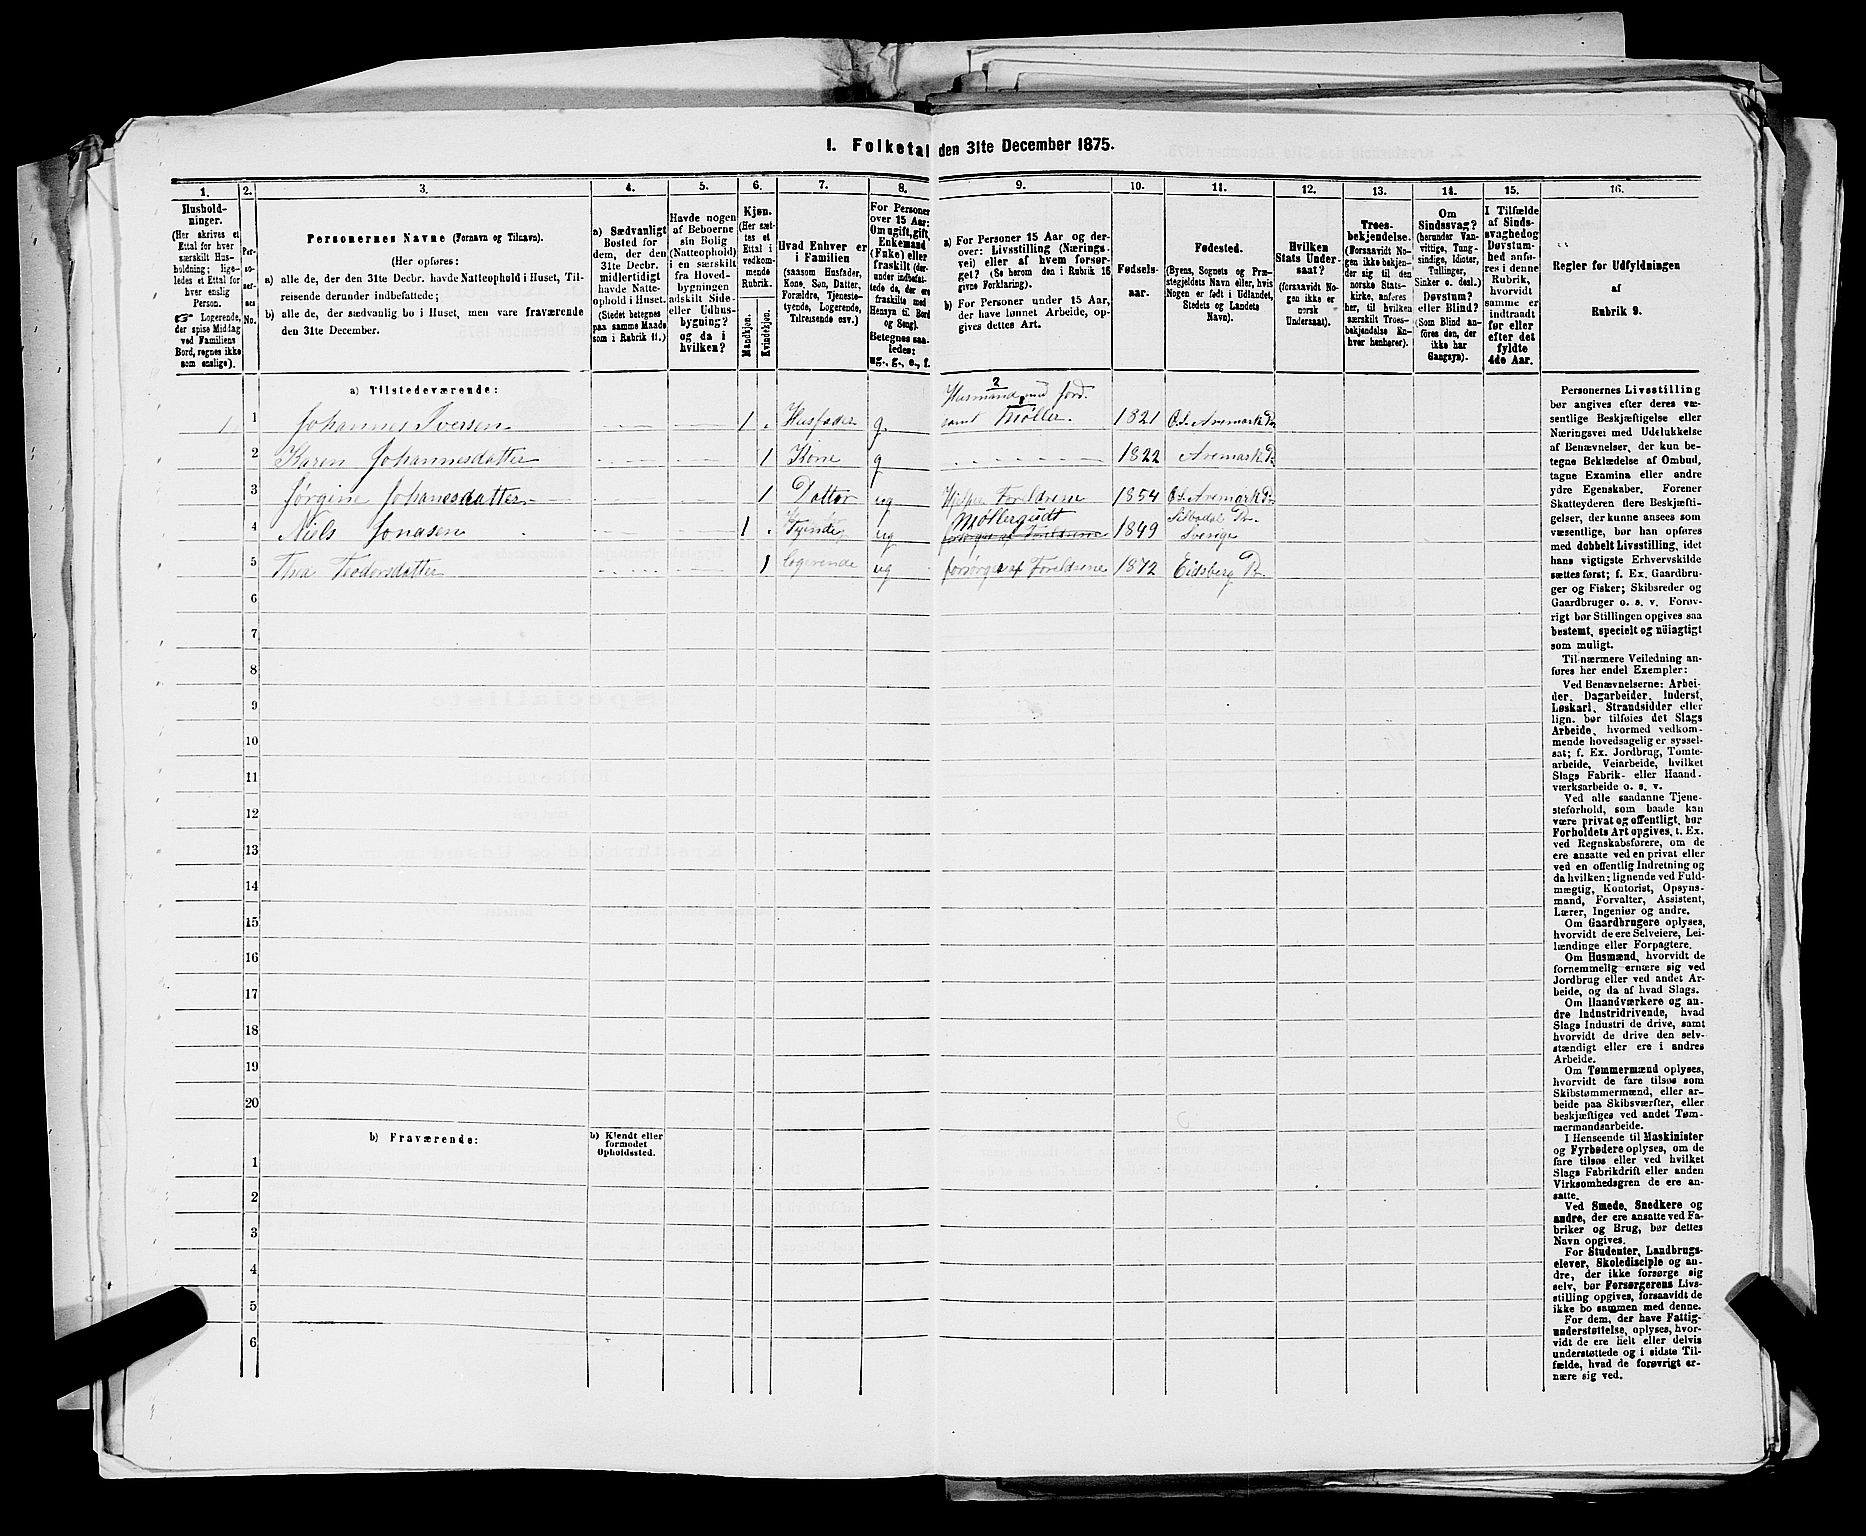 1. Folketal den 31te December 1875.
1.
2.
3.
4.
5.
6.
7.
8.
9.
10.
11.
12.
13.
14.
15.
16.
Hushold-
ninger.
(Her skrives et
Ettal for hver
særskilt Hus-
holdning; lige-
ledes et Ettal for
hver enslig
Person.
☞ Logerende,
der spise Middag
ved Familiens
Bord, regnes ikke
som enslige).
Per-
so-
ner-
nes
No.
Personernes Navne (Fornavn og Tilnavn).
(Her opføres:
a) alle de, der den 31te Decbr. havde Natteophold i Huset, Til-
reisende derunder indbefattede;
b) alle de, der sædvanlig bo i Huset, men vare fraværende
den 31te December.
a) Sædvanligt
Bosted for
dem, der den
31te Decbr.
midlertidigt
havde Natte-
ophold i Huset.
(Stedet betegnes
paa samme Maade
som i Rubrik 11.)
Havde nogen
af Beboerne
sin Bolig
(Natteophold)
i en særskilt
fra Hoved-
bygningen
adskilt Side-
eller Udhus-
bygning?
og da i
hvilken?
Kjøn.
(Her sæt-
tes et
Ettal i
vedkom-
mende
Rubrik.
Mandkjøn.
Kvindekjøn.
Hvad Enhver er
i Familien
(saasom Husfader,
Kone, Søn, Datter,
Forældre, Tjeneste-
tyende, Logerende,
Tilreisende osv.)
For Personer
over 15 Aar:
Om ugift, gift,
Enkemand
(Enke) eller
fraskilt (der-
under indbefat-
tede de, der ere
fraskilte med
Hensyn til Bord
og Seng).
Betegnes saa-
ledes:
ug., g., e., f.
a) For Personer 15 Aar og der-
over: Livsstilling (Nærings-
vei) eller af hvem forsør-
get? (Se herom den i Rubrik 16
givne Forklaring).
b) For Personer under 15 Aar,
der have lønnet Arbeide, op-
gives dettes Art.
Fødsels-
aar.
Fødested.
(Byens, Sognets og Præ-
stegjeldets Navn eller, hvis
Nogen er født i Udlandet,
Stedets og Landets
Navn).
Hvilken
Stats Under-
saat?
(forsaavidt No-
gen ikke er
norsk
Undersaat).
Troes-
bekjendelse.
(Forsaavidt No-
gen ikke bekjen-
der sig til den
norske Stats-
kirke, anføres
her, til hvilken
særskilt Troes-
bekjendelse En-
hver henhører).
Om
Sindssvag?
(herunder Van-
vittige, Idioter,
Tullinger,
Sinker o. desl.)
Døvstum?
eller Blind?
(Som Blind an-
føres den, der
ikke har
Gangsyn).
I Tilfælde
af Sinds-
svaghed og
Døvstum-
hed anfø-
res i denne
Rubrik,
hvorvidt
samme er
indtraadt
før eller
efter det
fyldte
4de Aar.
Regler for Udfyldningen
af
Rubrik 9.
a) Tilstedeværende:
1 1 Johannes Iversen 1 Husfader g. Husmand med Jord samt Møller. 1821 Avemark Pr
2 Karen Johannesdatter 1 Kone g 1822 Avemark Pr
3 Jørgine Johanesdatter 1 Datter ug Hjelper Foreldrene 1854 Avemark Pr
4 Niels Jonasen 1 Tyende ug Møllergudt forsørges af Foreldrene 1849 Silbodal Pr. Sverige
5 Teodorsdatter 1 logerende ug forsørges af Foreldrene 1872 Eidsberg Pr
6
7
8
9
10
11
12
13
14
15
16
17
18
19
20
b) Fraværende:
b) Kjendt eller
formodet
Opholdssted.
1
2
3
4
5
6
Personernes Livsstilling
bør angives efter deres væ-
sentlige Beskjæftigelse eller
Næringsvei med Udelukkelse
af Benævnelser, der kun be-
tegne Beklædelse af Ombud,
tagne Examina eller andre
ydre Egenskaber. Forener
Skatteyderen flere Beskjæfti-
gelser, der kunne ansees som
væsentlige, bør han opføres
med dobbelt Livsstilling, idet
hans vigtigste Erhvervskilde
sættes først; f. Ex. Gaardbru-
ger og Fisker; Skibsreder og
Gaardbruger o. s. v. Forøv-
rigt bør Stillingen opgives saa
bestemt, specielt og nøiagtigt
som muligt.
Til nærmere Veiledning an-
føres her endel Exempler:
Ved Benævnelserne: Arbei-
der, Dagarbeider, Inderst,
Løskarl, Strandsidder eller
lign. bør tilføies det Slags
Arbeide, hvormed vedkom-
mende hovedsagelig er syssel-
sat; f. Ex. Jordbrug, Tomte-
arbeide, Veiarbeide, hvilket
Slags Fabrik- eller Haand-
værksarbeide o. s. v.
Ved alle saadanne Tjene-
steforhold, som baade kan
være privat og offentligt, bør
Forholdets Art opgives, t. Ex.
ved Regnskabsførere, om de
ere ansatte ved en privat eller
ved en offentlig Indretning og
da hvilken; lignende ved Fuld-
mægtig, Kontorist, Opsyns-
mand, Forvalter, Assistent,
Lærer, Ingeniør og andre.
Om Gaardbrugere oplyses,
hvorvidt de ere Selveiere, Lei-
lændinge eller Forpagtere.
Om Husmænd, hvorvidt de
fornemmelig ernære sig ved
Jordbrug eller ved andet Ar-
beide, og da af hvad Slags.
Om Haandværkere og an-
dre Industridrivende, hvad
Slags Industri de drive, samt
hvorvidt de drive den selv-
stændigt eller ere i andres
Arbeide.
Om Tømmermænd oplyses,
hvorvidt de fare tilsøs som
Skibstømmermænd, eller ar-
beide paa Skibsværfter, eller
beskjæftiges ved andet Tøm-
mermandsarbeide.
I Henseende til Maskinister
og Fyrbødere oplyses, om de
fare tilsøs eller ved hvilket
Slags Fabrikdrift eller anden
Virksomhedsgren de ere an-
satte.
Ved Smede, Snedkere og
andre, der ere ansatte ved Fa-
briker og Brug, bør dettes
Navn opgives.
For Studenter, Landbrugs-
elever, Skoledisciple og an-
dre, der ikke forsørge sig
selv, bør Forsørgerens Livs-
stilling opgives, forsaavidt de
ikke bo sammen med denne.
For dem, der have Fattig-
understøttelse, oplyses, hvor-
vidt de ere helt eller delvis
understøttede og i sidste Til-
fælde, hvad de forøvrigt er-
nære sig ved.